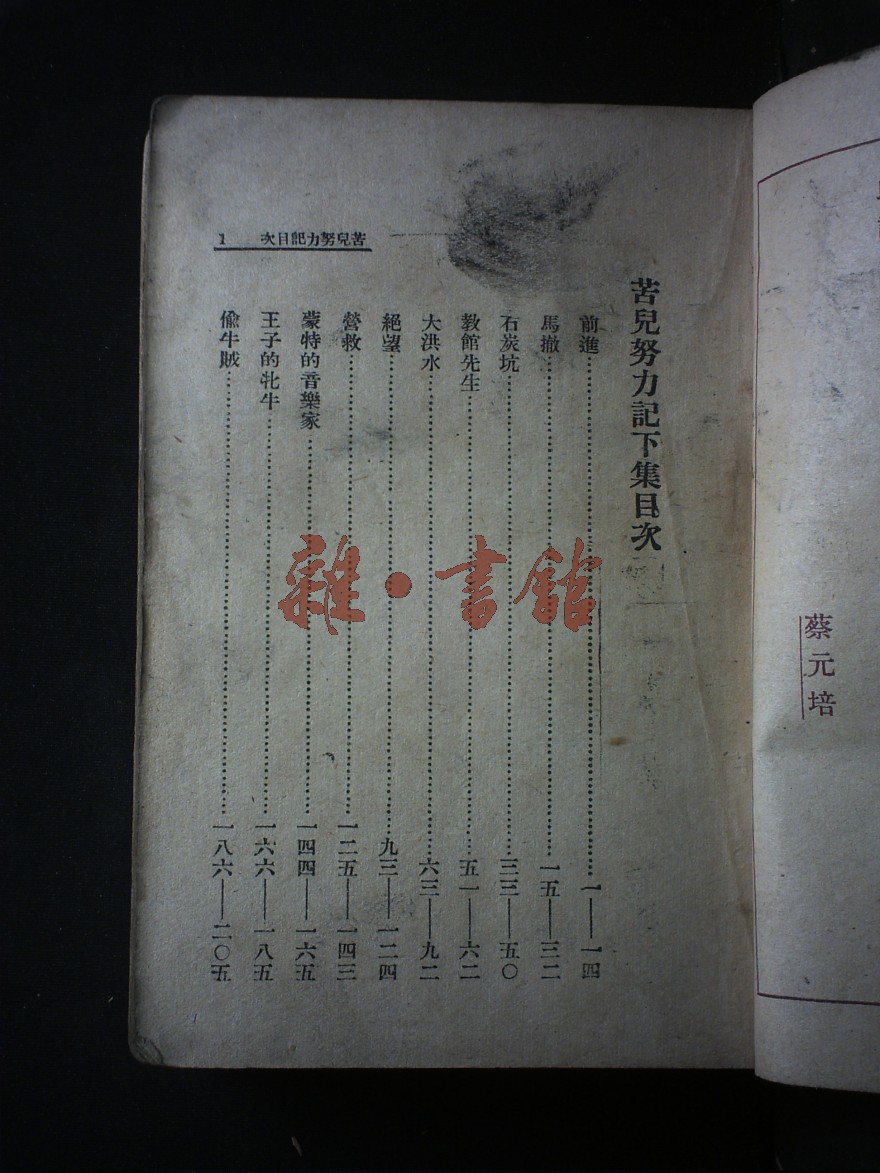 苦兒努力記目次 1
苦兒努力記下集目次
前進……一——一四
馬撤……一五——三二
石炭坑……三三——五〇
教館先生……五一——六二
大洪水……六三——九二
絕望……九三——一二四
營救……一二五——一四三
蒙特的音樂家……一四四——一六五
王子的牝牛……一六六——一八五
偸牛賊……一八六——二〇五
蔡元培
雜·書館